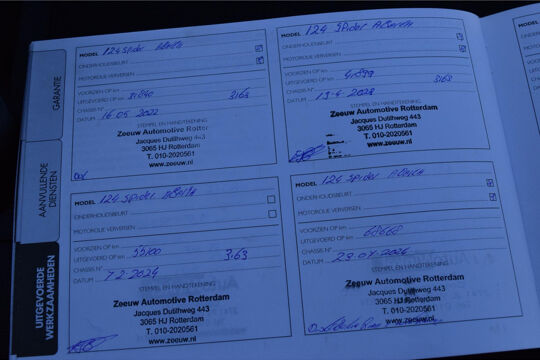 GARANTIE
AANVULLENDE
DIENSTEN
UITGEVOERDE
WERKZAAMHEDEN
MODEL 124 Spider Abarth
ONDERHOUDSBEURT
MOTOROLIE VERVERSEN
VOORZIEN OP km
UITGEVOERD OP km 31840 3163
CHASSIS N°
DATUM 16-05-2022
STEMPEL EN HANDTEKENING
Zeeuw Automotive Rotter
Jacques Dutilhweg 443
3065 HJ Rotterdam
T. 010-2020561
www.zeeuw.nl
MODEL 124 Spider Abarth
ONDERHOUDSBEURT
MOTOROLIE VERVERSEN
VOORZIEN OP km
UITGEVOERD OP km 3163
CHASSIS N°
DATUM
STEMPEL EN HANDTEKENING
Zeeuw Automotive Rotterdam
Jacques Dutilhweg 443
3065 HJ Rotterdam
T. 010-2020561
www.zeeuw.nl
MODEL 124 Spider Abarth
ONDERHOUDSBEURT
MOTOROLIE VERVERSEN
VOORZIEN OP km
UITGEVOERD OP km 3.63
CHASSIS N°
DATUM 7-2-2024
STEMPEL EN HANDTEKENING
Zeeuw Automotive Rotterdam
Jacques Dutilhweg 443
3065 HJ Rotterdam
T. 010-2020561
www.zeeuw.nl
MODEL 124 Spider Abarth
ONDERHOUDSBEURT
MOTOROLIE VERVERSEN
VOORZIEN OP km
UITGEVOERD OP km 68668
CHASSIS N°
DATUM
STEMPEL EN HANDTEKENING
Zeeuw Automotive Rotterdam
Jacques Dutilhweg 443
3065 HJ Rotterdam
T. 010-2020561
www.zeeuw.nl